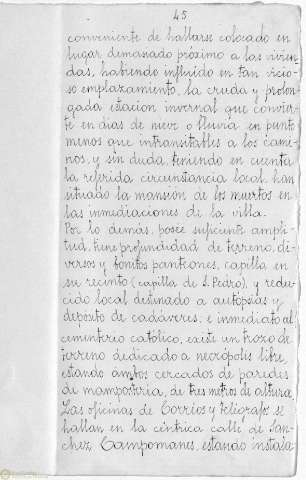 45
conveniente de hallarse colocado en
lugar demasiado próximo a las vivien-
das, habiendo influido en tan vicio-
so emplazamiento, la cruda y prolon-
gada estacion invernal que convier-
te en dias de nieve o lluvia, en punto
menos que intransitables a los cami-
nos, y sin duda, teniendo en cuenta
la referida circunstancia local, han
situado la mansión de los muertos en
las inmediaciones de la villa.
Por lo demas, posee suficiente ampli-
tud, tiene profundidad de terreno, di-
versos y bonitos panteones, capilla en
su recinto (capilla de S. Pedro), y redu-
cido local destinado a autopsias y
depósito de cadáveres; e inmediato al
cementerio católico, existe un trozo de
terreno dedicado a necrópolis libre,
estando ambos cercados de paredes
de mampostería, de tres metros de altura.
Las oficinas de Correos y telégrafos se
hallan en la céntrica calle de Sán-
chez Campomanes, estando instala-